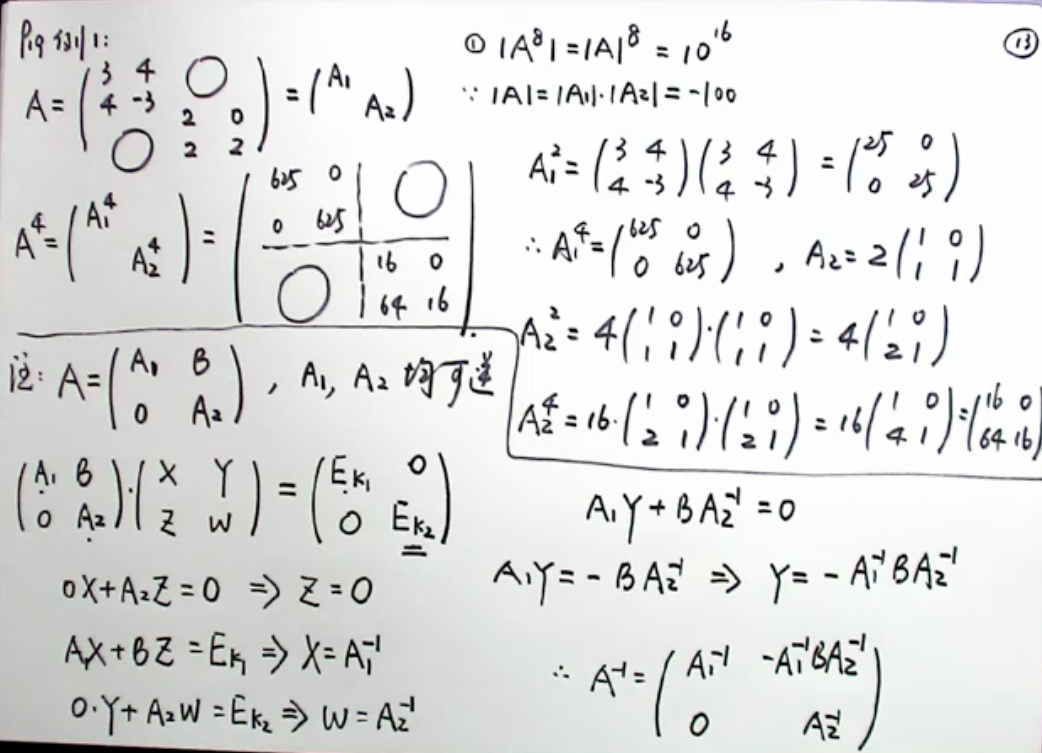 P19 例1:
A = ( 3 4 ◯ ; 4 -3 2 0 ; ◯ 2 2 ) = ( A₁ ; A₂ )
A⁴ = ( A₁⁴ ; A₂⁴ ) = ( 625 0 | ◯ ; 0 625 | ; ◯ | 16 0 ; | 64 16 ).
① |A⁸| = |A|⁸ = 10¹⁶
⑬
∵ |A| = |A₁|·|A₂| = -100
A₁² = ( 3 4 ; 4 -3 ) ( 3 4 ; 4 -3 ) = ( 25 0 ; 0 25 )
∴ A₁⁴ = ( 625 0 ; 0 625 ) , A₂ = 2 ( 1 0 ; 1 1 )
A₂² = 4 ( 1 0 ; 1 1 ) · ( 1 0 ; 1 1 ) = 4 ( 1 0 ; 2 1 )
A₂⁴ = 16 · ( 1 0 ; 2 1 ) · ( 1 0 ; 2 1 ) = 16 ( 1 0 ; 4 1 ) = ( 16 0 ; 64 16 )
注: A = ( A₁ B ; 0 A₂ ) , A₁, A₂ 均可逆
( A₁ B ; 0 A₂ ) · ( X Y ; Z W ) = ( E_{k₁} 0 ; 0 E_{k₂} )
0X + A₂Z = 0 ⇒ Z = 0
A₁X + BZ = E_{k₁} ⇒ X = A₁⁻¹
0·Y + A₂W = E_{k₂} ⇒ W = A₂⁻¹
A₁Y + BA₂⁻¹ = 0
A₁Y = - BA₂⁻¹ ⇒ Y = - A₁⁻¹BA₂⁻¹
∴ A⁻¹ = ( A₁⁻¹ -A₁⁻¹BA₂⁻¹ ; 0 A₂⁻¹ )